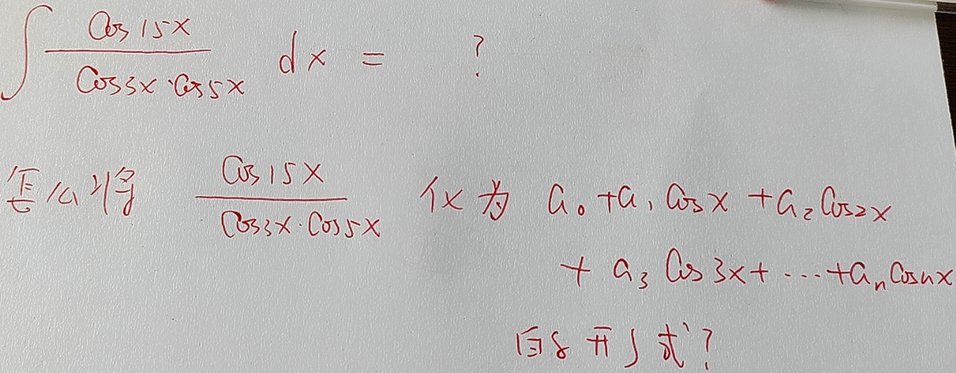 ∫ Cos15x / (Cos3x·Cos5x) dx = ?
怎么将 Cos15x / (Cos3x·Cos5x) 化为 a₀+a₁Cosx+a₂Cos2x
+a₃Cos3x+⋯+aₙCosnx
的形式?